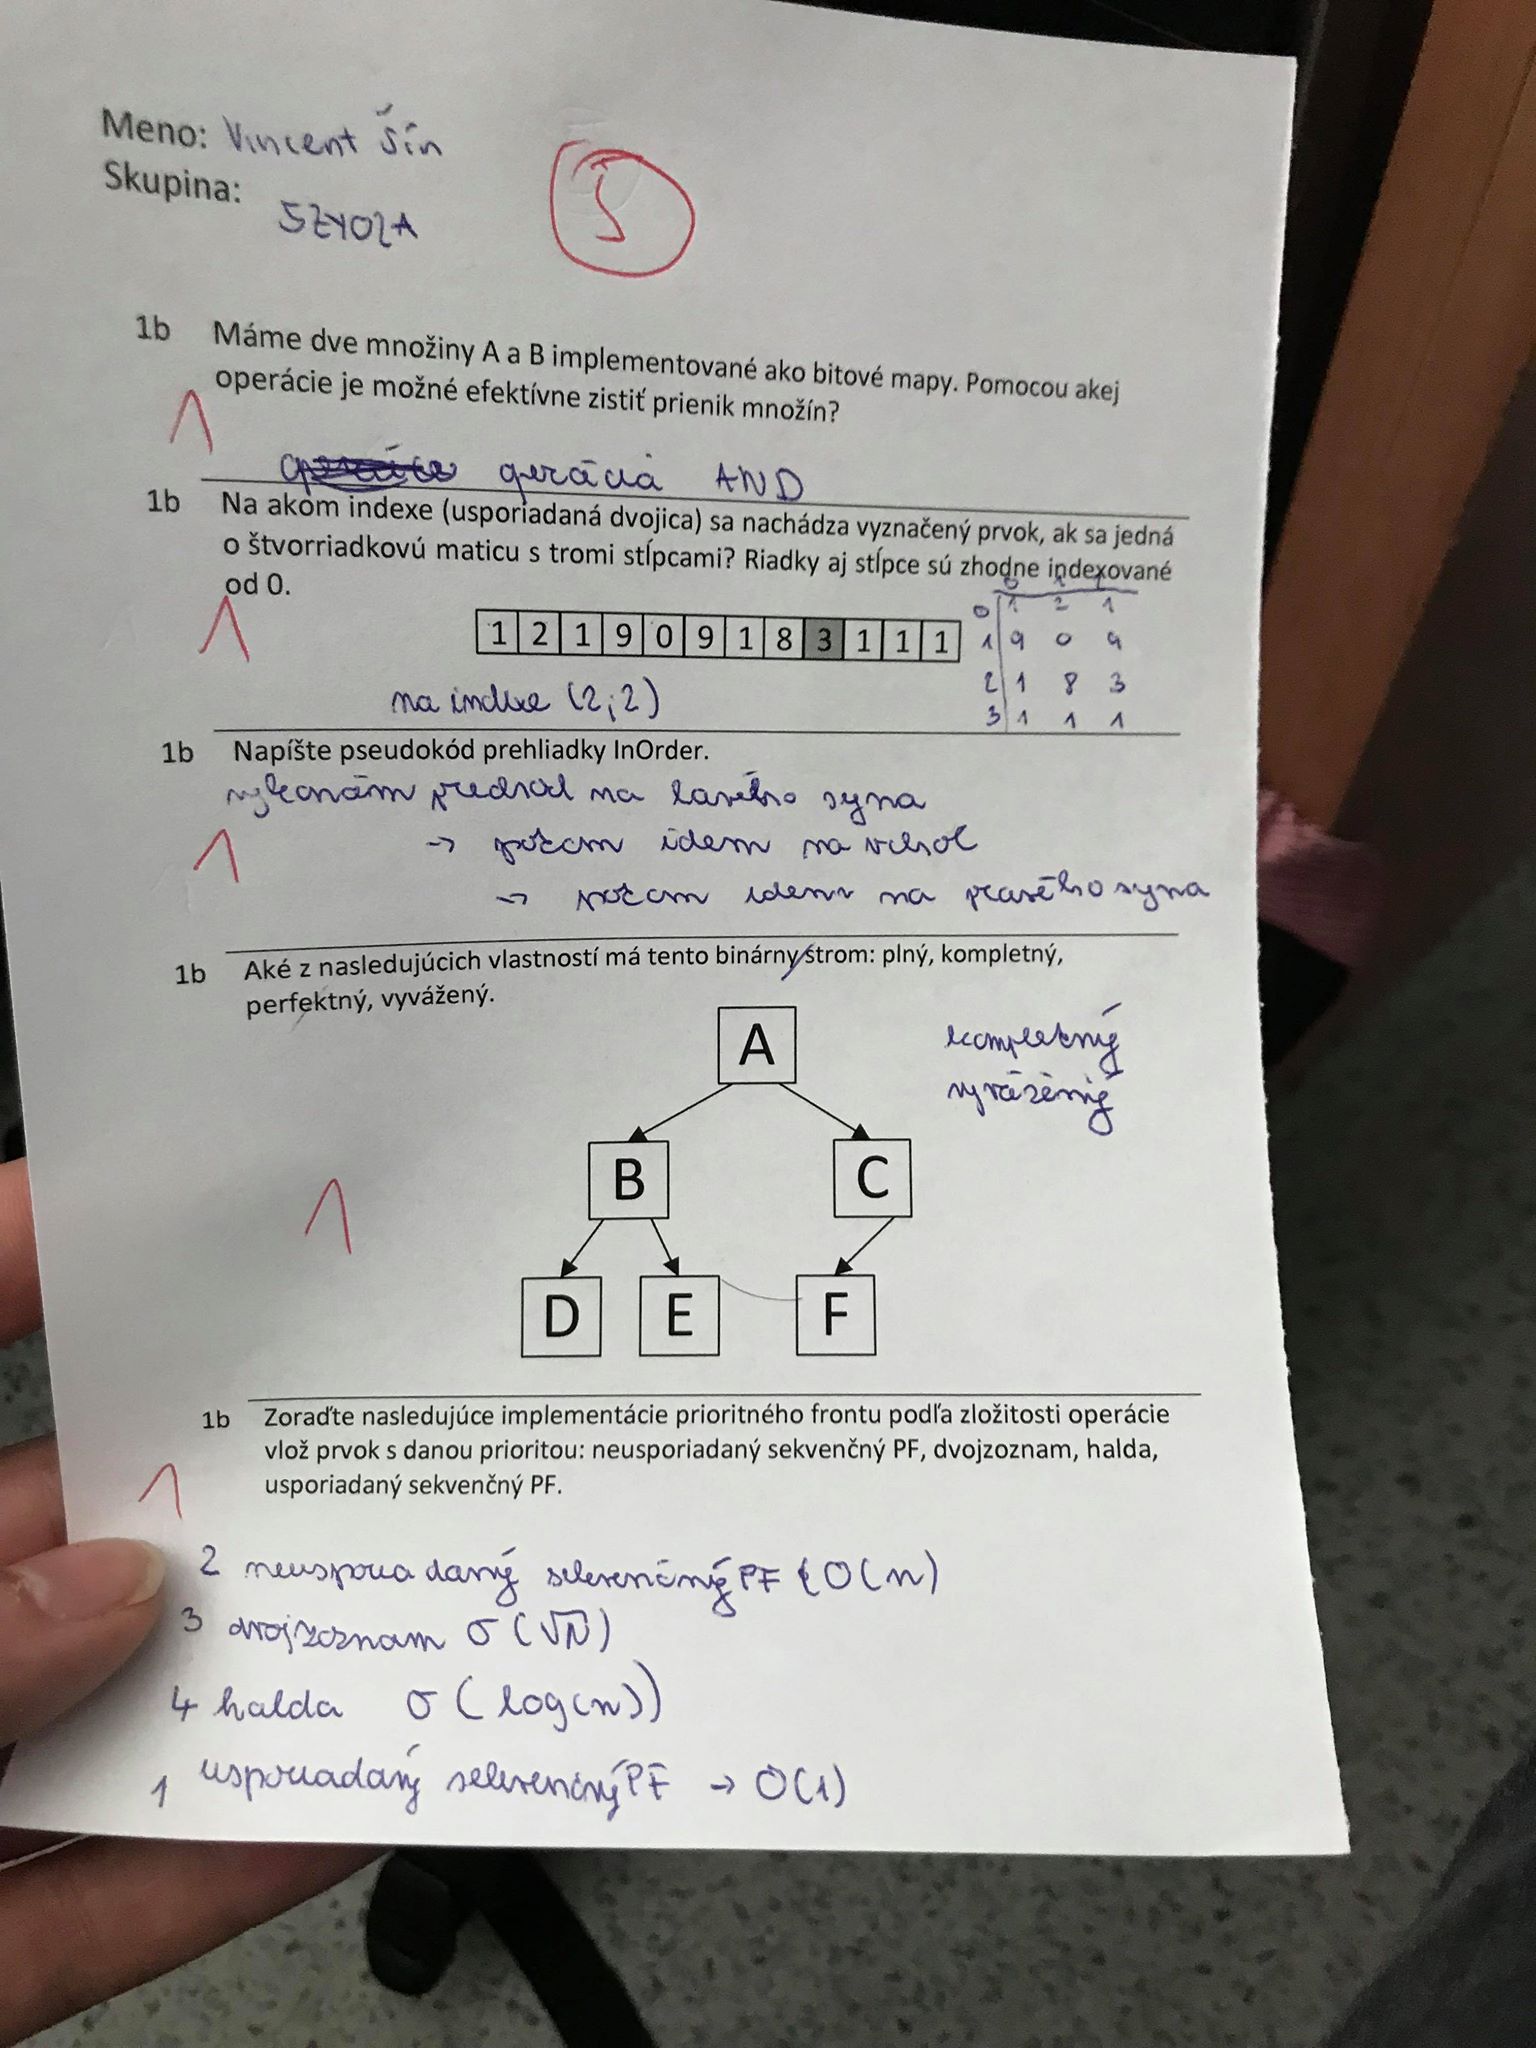 Meno: Vincent Šín
Skupina: 5ZY02A
5
1b Máme dve množiny A a B implementované ako bitové mapy. Pomocou akej
operácie je možné efektívne zistiť prienik množín?
1
operácia AND
1b Na akom indexe (usporiadaná dvojica) sa nachádza vyznačený prvok, ak sa jedná
o štvorriadkovú maticu s tromi stĺpcami? Riadky aj stĺpce sú zhodne indexované
od 0.
1
1 2 1 9 0 9 1 8 3 1 1 1
0 1 2
0 1 2 1
1 9 0 9
2 1 8 3
3 1 1 1
na indexe (2;2)
1b Napíšte pseudokód prehliadky InOrder.
vykonám prechod na ľavého syna
→ potom idem na vrchol
1
→ potom idem na pravého syna
1b Aké z nasledujúcich vlastností má tento binárny strom: plný, kompletný,
perfektný, vyvážený.
A
kompletný
vyvážený
B C
1
D E F
1b Zoraďte nasledujúce implementácie prioritného frontu podľa zložitosti operácie
vlož prvok s danou prioritou: neusporiadaný sekvenčný PF, dvojzoznam, halda,
usporiadaný sekvenčný PF.
1
2 neusporiadaný sekvenčný PF O(n)
3 dvojzoznam O(√N)
4 halda O(log(n))
1 usporiadaný sekvenčný PF → O(1)